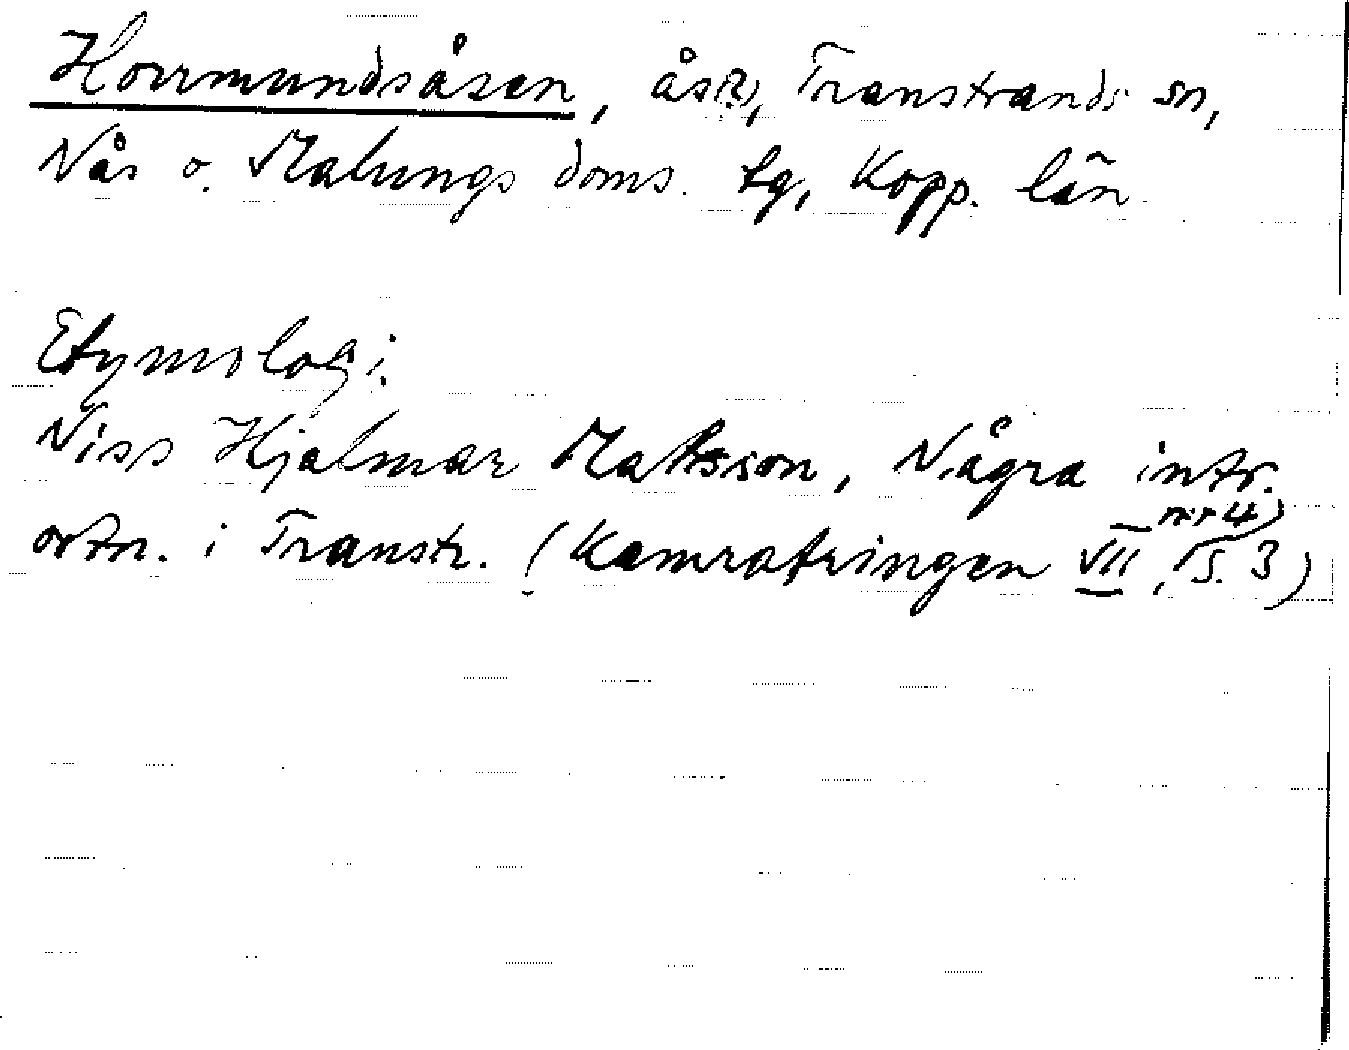 Horrmundsåsen, ås(?), Transtrands sn,
Nås o. Malungs doms. tg, Kopp. län
Etymologi:
Niss Hjalmar Matsson, Några intr.
ortn. i Transtr. (Kamratringen VII, nr 4, s. 3)